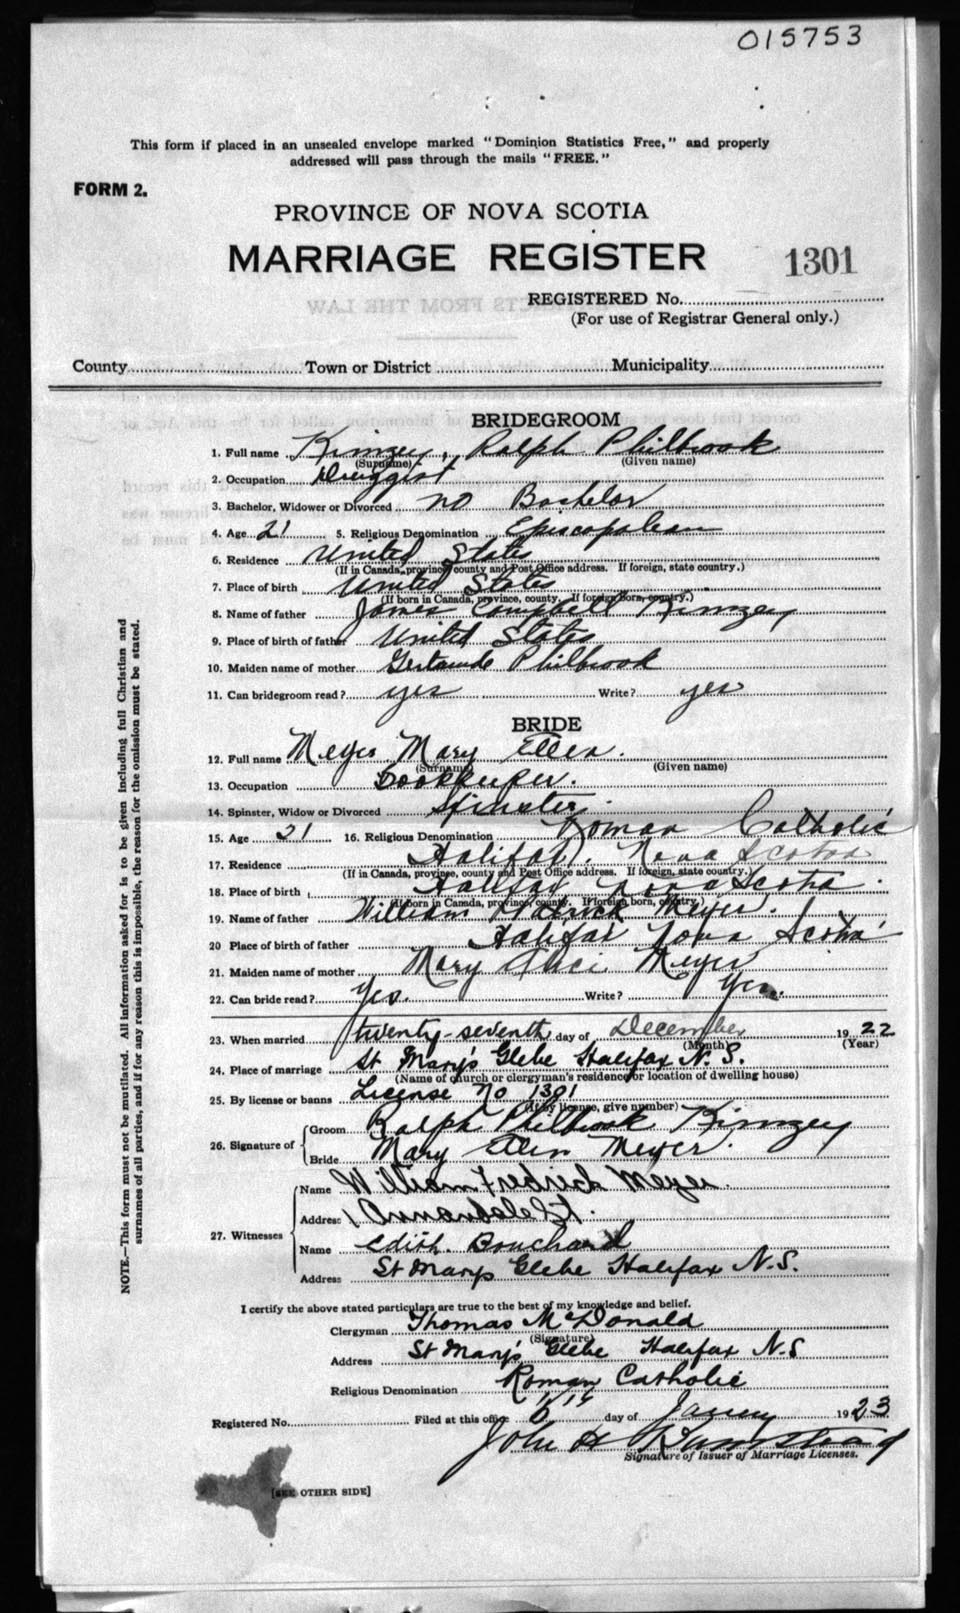 015753
This form if placed in an unsealed envelope marked "Dominion Statistics Free," and properly
addressed will pass through the mails "FREE."
FORM 2.
PROVINCE OF NOVA SCOTIA
MARRIAGE REGISTER 1301
REGISTERED No.
(For use of Registrar General only.)
County Town or District Municipality
BRIDEGROOM
1. Full name Kimzey, Ralph Philbrook
(Surname) (Given name)
2. Occupation Druggist
3. Bachelor, Widower or Divorced no Bachelor
4. Age 21 5. Religious Denomination Episcopalean
6. Residence United States
(If in Canada, province, county and Post Office address. If foreign, state country.)
7. Place of birth United States
(If born in Canada, province, county. If foreign born, country.)
8. Name of father James Campbell Kimzey
9. Place of birth of father United States
10. Maiden name of mother Gertrude Philbrook
11. Can bridegroom read? yes Write? yes
BRIDE
12. Full name Meyer Mary Ellen.
(Surname) (Given name)
13. Occupation Bookkeeper.
14. Spinster, Widow or Divorced Spinster.
15. Age 21 16. Religious Denomination Roman Catholic
17. Residence Halifax, Nova Scotia
(If in Canada, province, county and Post Office address. If foreign, state country.)
18. Place of birth Halifax Nova Scotia.
(If born in Canada, province, county. If foreign born, country.)
19. Name of father William Fredrick Meyer.
20 Place of birth of father Halifax Nova Scotia
21. Maiden name of mother Mary Meyer
22. Can bride read? Yes. Write? Yes.
23. When married twenty-seventh day of December 1922
(Month) (Year)
24. Place of marriage St Mary's Glebe Halifax N.S.
(Name of church or clergyman's residence or location of dwelling house)
25. By license or banns License No 1301
(If by license, give number)
26. Signature of Groom Ralph Philbrook Kimzey
Bride Mary Ellen Meyer.
27. Witnesses Name William Fredrick Meyer.
Address 1 Annandale St.
Name Edith. Bouchard
Address St Mary's Glebe Halifax N.S.
I certify the above stated particulars are true to the best of my knowledge and belief.
Clergyman Thomas McDonald
(Signature)
Address St Mary's Glebe Halifax N.S
Religious Denomination Roman Catholic
Registered No. Filed at this office 6 day of Jany 1923
John H
Signature of Issuer of Marriage Licenses.
[SEE OTHER SIDE]
NOTE.—This form must not be mutilated. All information asked for is to be given including full Christian and
surnames of all parties, and if for any reason this is impossible, the reason for the omission must be stated.